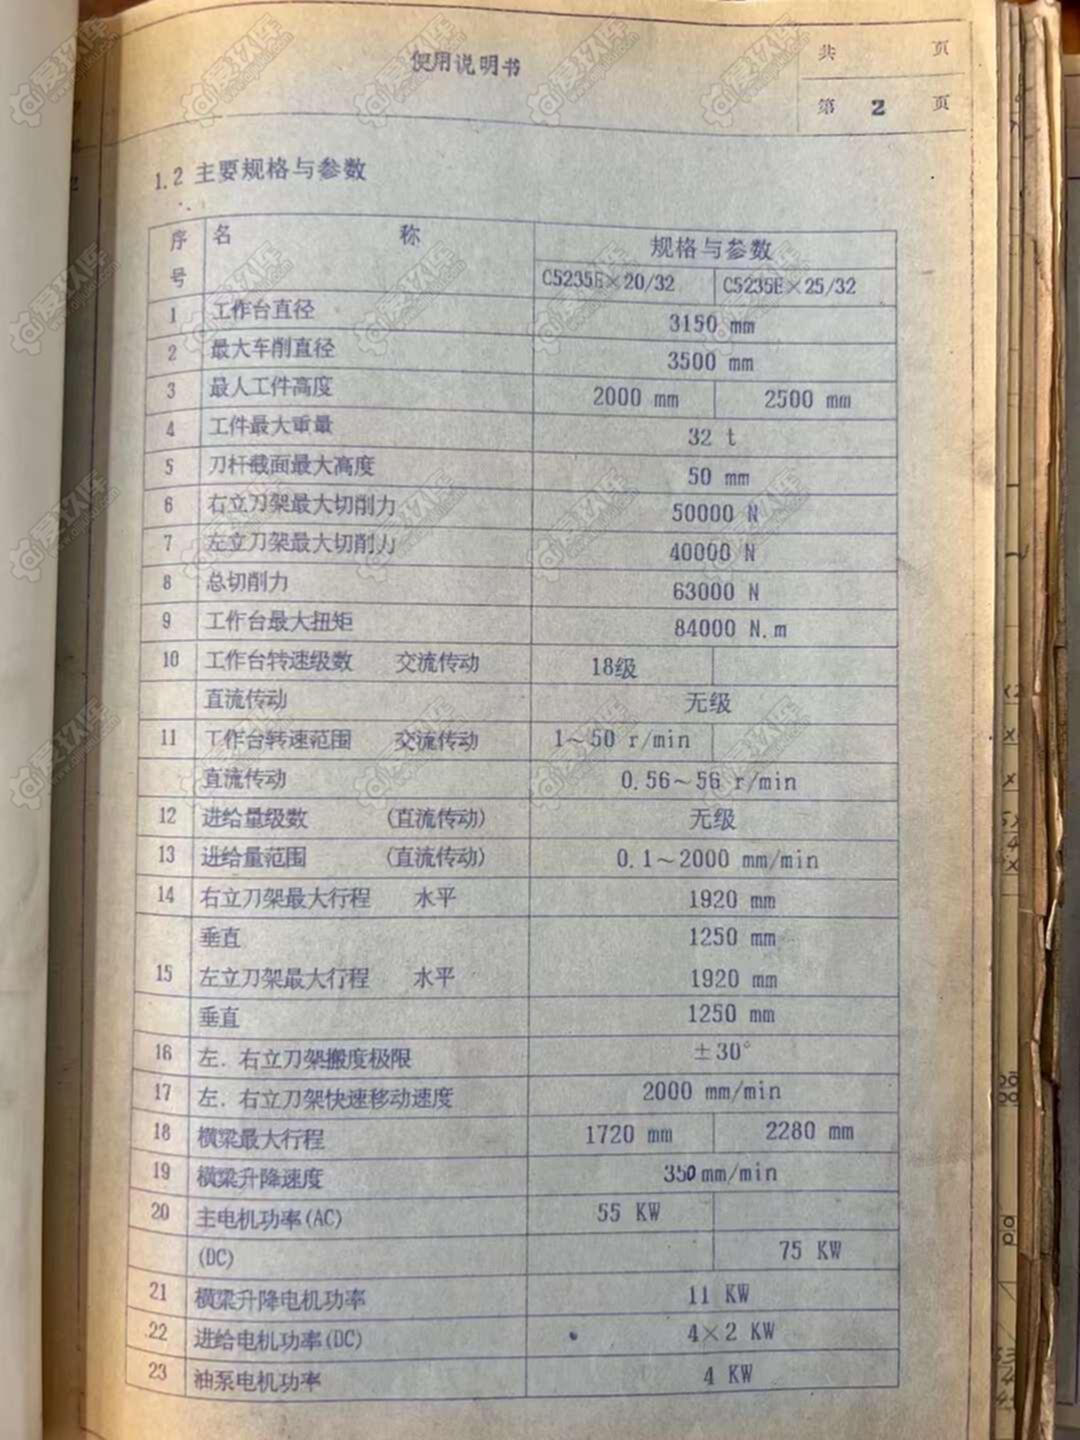 使用说明书
共 页
第 2 页
1.2 主要规格与参数
序号 名 称 规格与参数
C5235E×20/32 C5235E×25/32
1 工作台直径 3150 mm
2 最大车削直径 3500 mm
3 最人工件高度 2000 mm 2500 mm
4 工件最大重量 32 t
5 刀杆截面最大高度 50 mm
6 右立刀架最大切削力 50000 N
7 左立刀架最大切削力 40000 N
8 总切削力 63000 N
9 工作台最大扭矩 84000 N.m
10 工作台转速级数 交流传动 18级
直流传动 无级
11 工作台转速范围 交流传动 1~50 r/min
直流传动 0.56~56 r/min
12 进给量级数 (直流传动) 无级
13 进给量范围 (直流传动) 0.1~2000 mm/min
14 右立刀架最大行程 水平 1920 mm
垂直 1250 mm
15 左立刀架最大行程 水平 1920 mm
垂直 1250 mm
16 左．右立刀架搬度极限 ±30°
17 左．右立刀架快速移动速度 2000 mm/min
18 横梁最大行程 1720 mm 2280 mm
19 横梁升降速度 350mm/min
20 主电机功率(AC) 55 KW
(DC) 75 KW
21 横梁升降电机功率 11 KW
22 进给电机功率(DC) 4×2 KW
23 油泵电机功率 4 KW